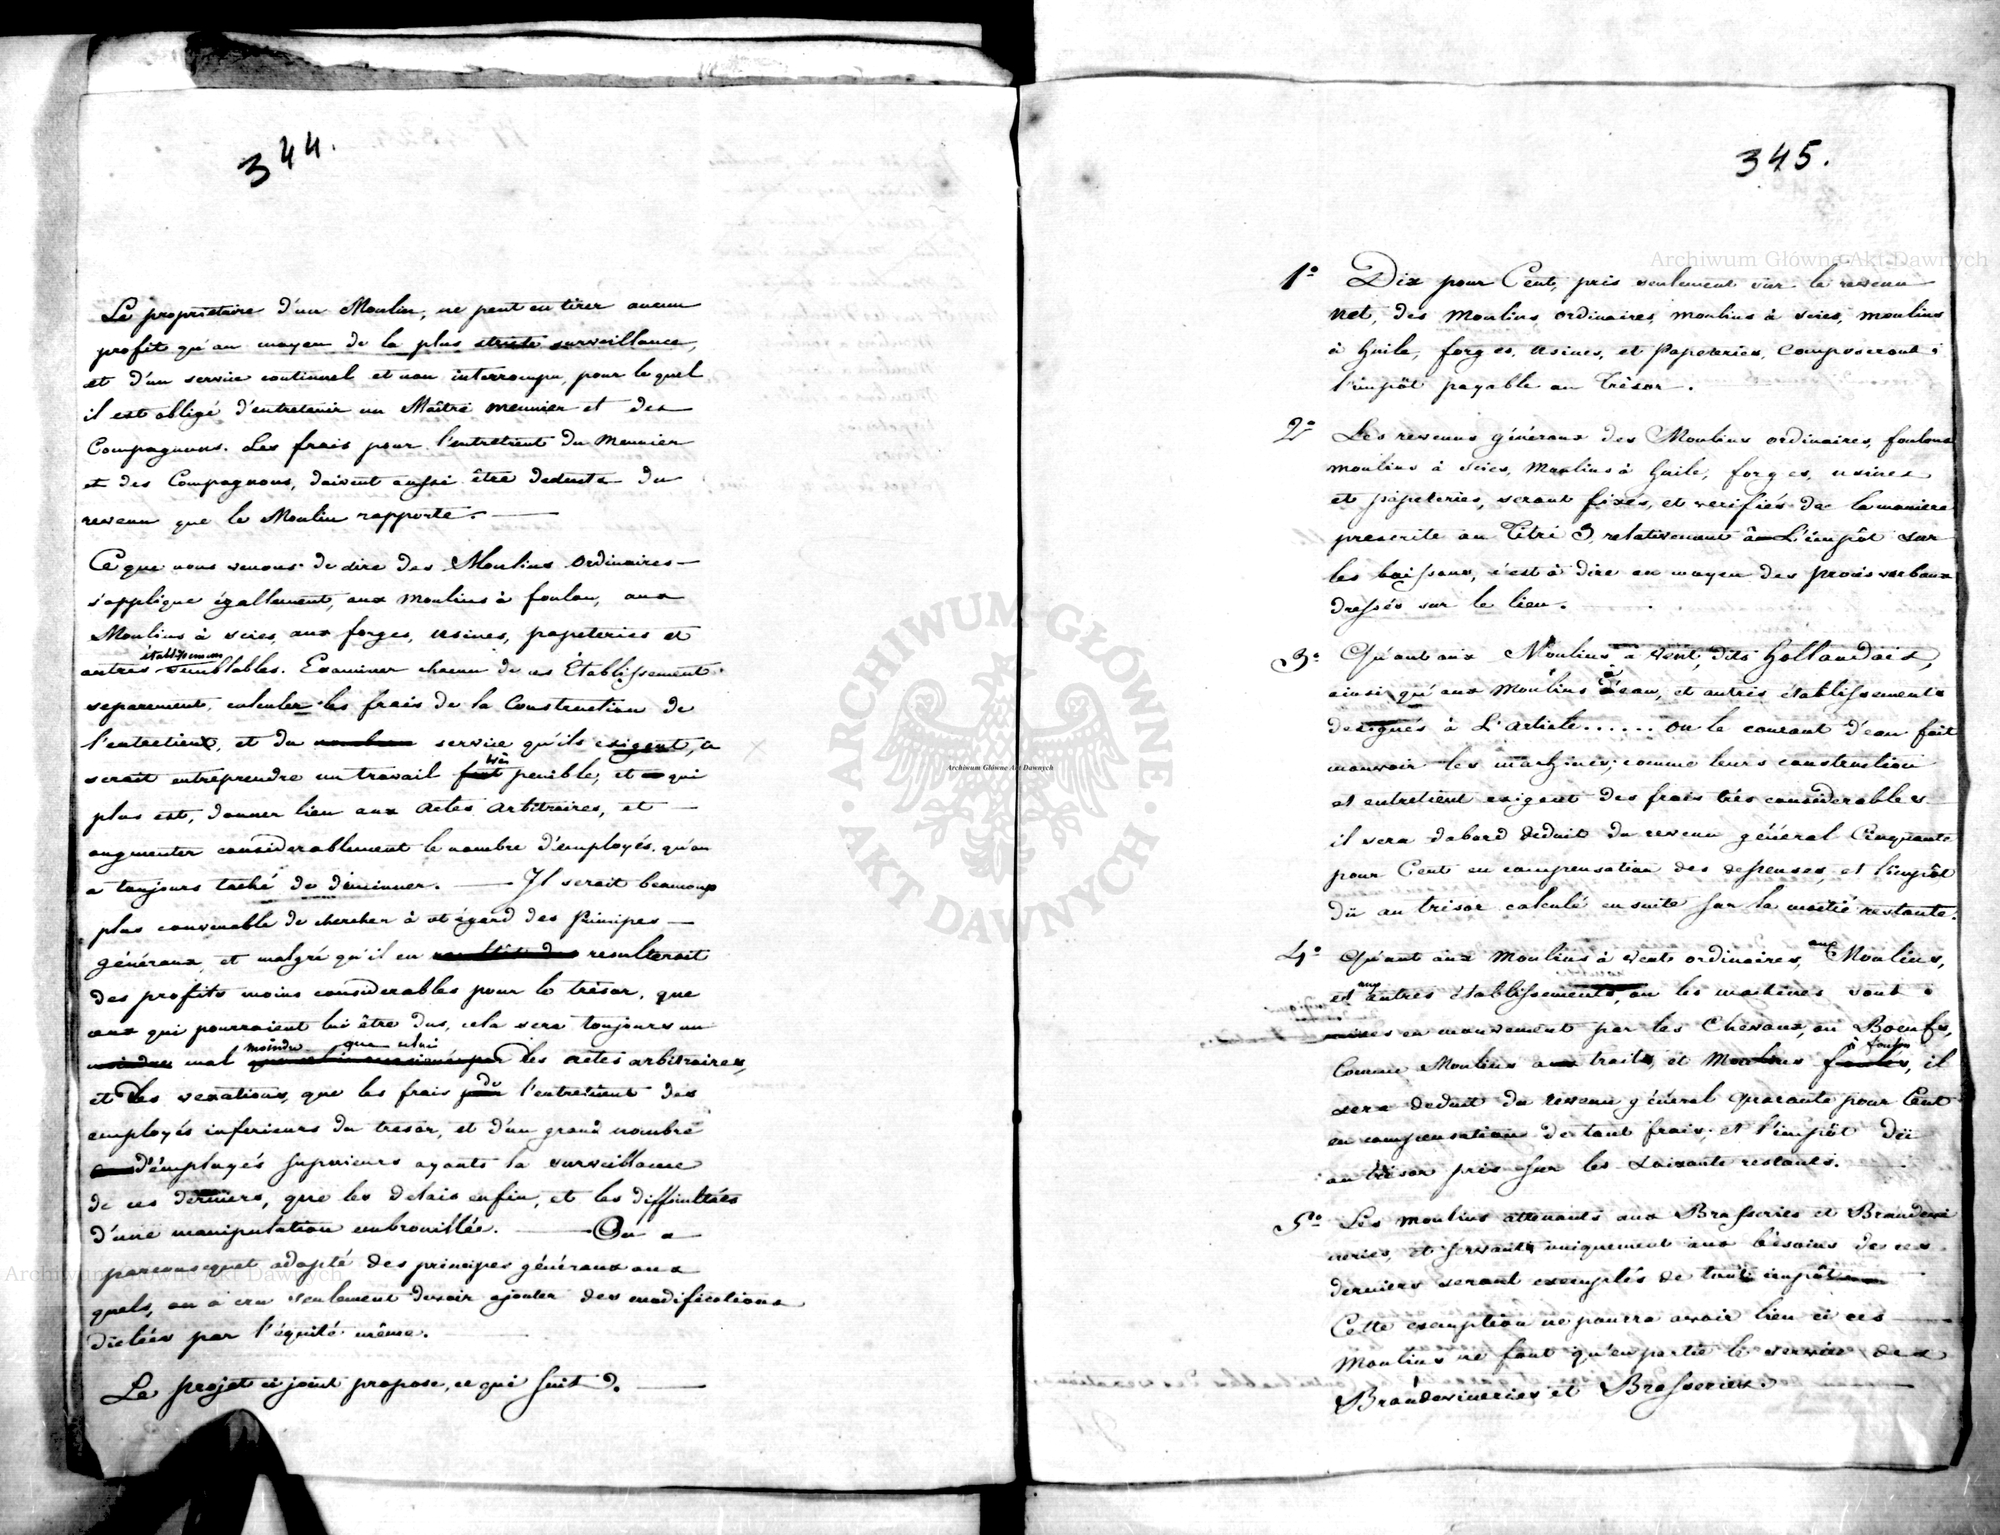 344.
Le propriétaire d'un Moulin, ne peut en tirer aucun
profit qu'au moyen de la plus stricte surveillance,
et d'un service continuel et non interrompu, pour lequel
il est obligé d'entretenir un Maître meunier et des
Compagnons. Les frais pour l'entretient du Meunier
et des Compagnons, doivent aussi être deduits du
revenu que le Moulin rapporte.
Ce que nous venons de dire des Moulins Ordinaires
s'applique égallement, aux moulins à foulon, aux
Moulins à scies, aux forges, usines, papeteries et
établissemens
autres semblables. Examiner chacun de ces Etablissement
separement, calculer les frais de la Construction de
l'entretient, et du service qu'ils exigent, ce
serait entreprendre un travail bien penible, et qui
plus est, donner lieu aux actes arbitraires, et
augmenter considerablement le nombre d'employés qu'on
a toujours taché de diminuer. Il serait beaucoup
plus convenable de chercher à cet égard des Principes
généraux, et malgré qu'il en resulterait
des profits moins considerables pour le trésor, que
ceux qui pourraient lui être dus, cela sera toujours un
moindre que celui
mal les actes arbitraires,
et les vexations, que les frais de l'entretient des
employés inferieurs du tresor, et d'un grand nombre
d'émployés superieurs ayants la surveillance
de ces derniers, que les delais enfin, et les difficultées
d'une manipulation embrouillée. On a
parconsequet adopté des principes généraux aux
quels, on a cru seulement devoir ajouter des modifications
dictées par l'équité même.
Le projet ci joint propose, ce qui suit
345.
1° Dix pour Cent, pris seulement sur le revenu
net, des Moulins ordinaires, moulins à scies, moulins
à huile, forges, usines, et Papeteries, composeront
l'impôt payable au Trésor.
2° Les revenus généraux des Moulins ordinaires, foulons
moulins à scies, Moulins à huile, forges, usines
et papeteries, seront fixés, et verifiés de la maniere
prescrite au Titre 3, relativement à L'impôt sur
les boissons, c'est à dire au moyen des procès verbaux
dressés sur le lieu.
3° Qu'ant aux Moulins à vent, dits Hollandais,
ainsi qu'aux Moulins à eau, et autres établissements
designés à L'article...... ou le courant d'eau fait
mouvoir les machines; comme leurs construction
et entretient exigent des frais très considerables
il sera dabord deduit du revenu général Cinquante
pour Cent en compensation des depenses, et l'impôt
dû au tresor calculé en suite sur la moitié restante.
4° Qu'ant aux Moulins à vents ordinaires, aux Moulins,
et aux autres établissements, ou les machines sont
mises en mouvement par les Chevaux, ou Boeufs,
à foulon
Comme Moulins à traits, et Moulins, il
sera deduit du revenu général quarante pour Cent
en compensation de tout frais, et l'impôt dû
au trésor pris sur les soixante restants.
5° Les moulins attenants aux Brasseries et Brandevi
neries, et servants uniquement aux bésoins de ces
derniers seront exemptés de tout impôt
Cette exemption ne pourra avoir lieu si ces
Moulins ne font qu'en partie le service des
Brandevineries et Brasseries.
Archiwum Główne Akt Dawnych
ARCHIWUM GŁÓWNE
AKT DAWNYCH
Archiwum Główne Akt Dawnych
Archiwum Główne Akt Dawnych